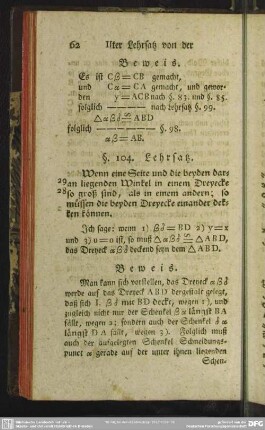 62 IIter Lehrsatz von der
Beweis.
Es ist Cβ = CB gemacht,
und Cα = CA gemacht, und gewor-
den y = ACB nach §. 83. und §. 85.
folglich — — — nach Lehrsatz §. 99.
△ αβδ ≅ ABD
folglich — — — — §. 98.
αβ = AB.
§. 104. Lehrsatz.
Wenn eine Seite und die beyden dar-
29 an liegenden Winkel in einem Dreyecke
28 so groß sind, als in einem andern; so
müssen die beyden Dreyecke einander dek-
ken können.
Ich sage: wenn 1) βδ = BD 2) y = x
und 3) u = n ist, so muß △ αβδ ≅ △ ABD,
das Dreyeck αβδ deckend seyn dem △ ABD.
Beweis.
Man kann sich vorstellen, das Dreyeck αβδ
werde auf das Dreyeck ABD dergestalt gelegt,
daß sich I. βδ mit BD decke, wegen 1), und
zugleich nicht nur der Schenkel βα längst BA
fällt, wegen 2; sondern auch der Schenkel δα
längst DA fällt, wegen 3). Folglich muß
auch der aufgelegten Schenkel Schneidungs-
punct α gerade auf der unter ihnen liegenden
Schen-